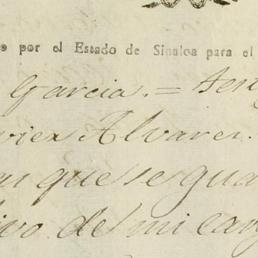 por el Estado de Sinaloa para el
Garcia. =
Alvarez.
que se gua
de mi carg